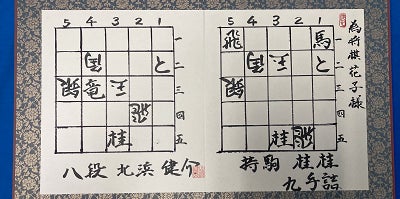 為将棋花子様
5 4 3 2 1
飛 馬
玉 と
銀
桂 飛
一
二
三
四
五
持駒 桂桂
九手詰
5 4 3 2 1
と
銀 竜 玉
飛
桂
一
二
三
四
五
八段 北浜 健介